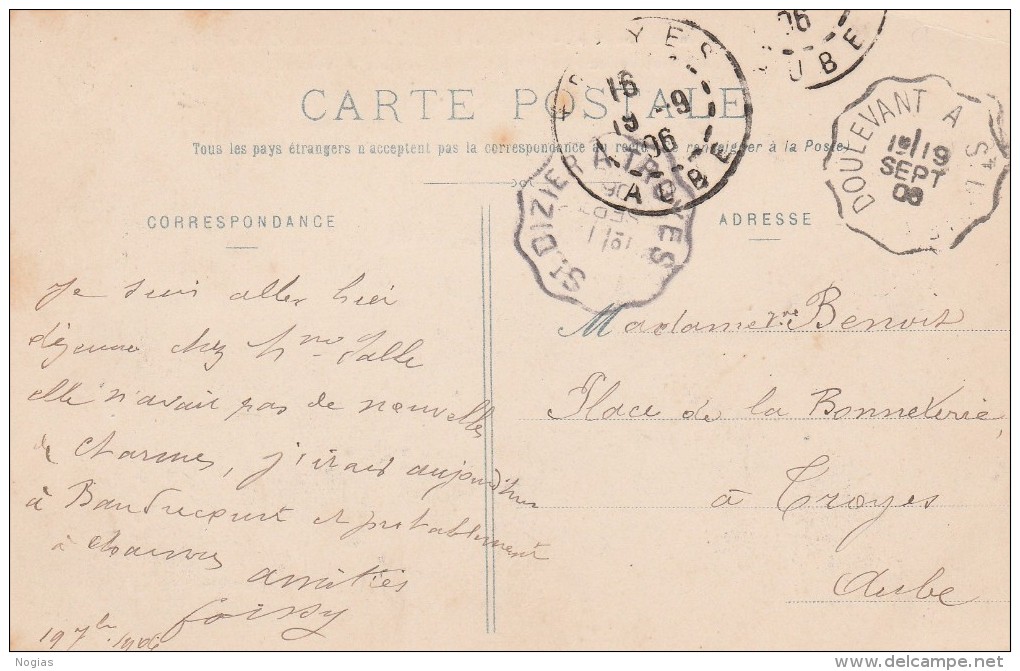 CARTE POSTALE
Tous les pays étrangers n'acceptent pas la correspondance au recto (Se renseigner à la Poste)
CORRESPONDANCE
ADRESSE
TROYES
16
19 -9
06
AUBE
06
UBE
DOULEVANT A ST D
19
SEPT
06
ST. DIZIER A TROYES
SEPT
06
Je suis aller hier
déjeuner chez Mme Salle
elle n'avait pas de nouvelles
de Charmes, j'irais aujourd'hui
à Baudrecourt et probablement
à Charmes
amitiés
Foissy
19 7bre 1906
Madame Vve Benoit
Place de la Bonneterie,
à Troyes
Aube
Nogias
www.delcampe.net